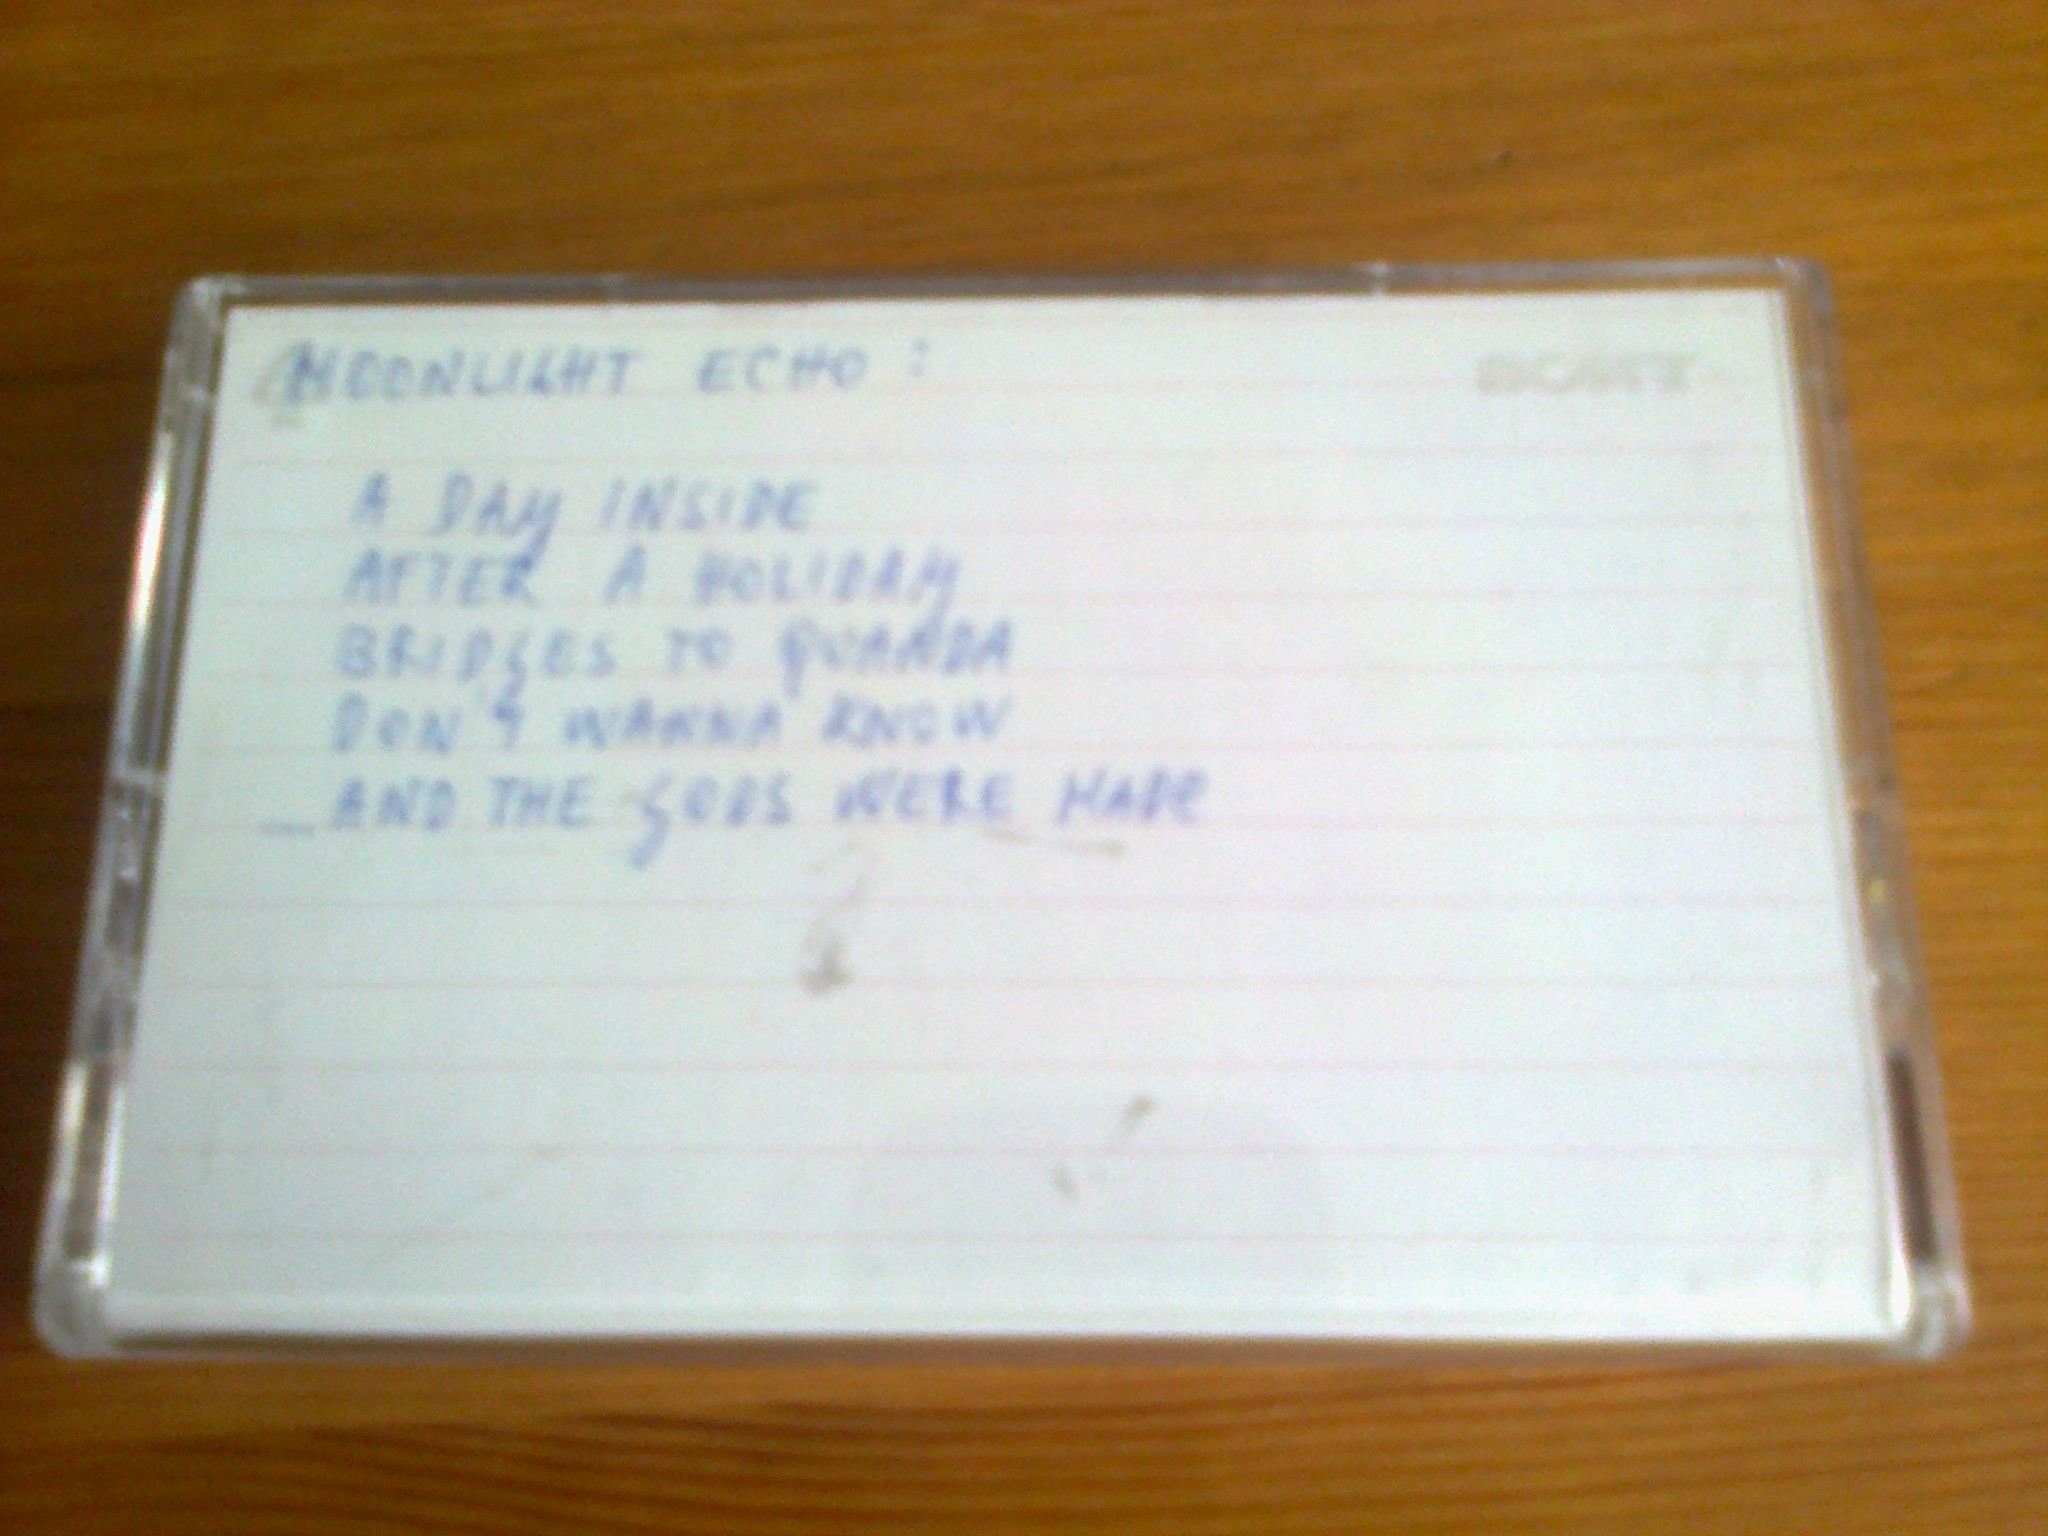 MOONLIGHT ECHO :
SONY
A DAY INSIDE
AFTER A HOLIDAY
BRIDGES TO QUANDA
DON'T WANNA KNOW
_ AND THE GODS WERE MADE